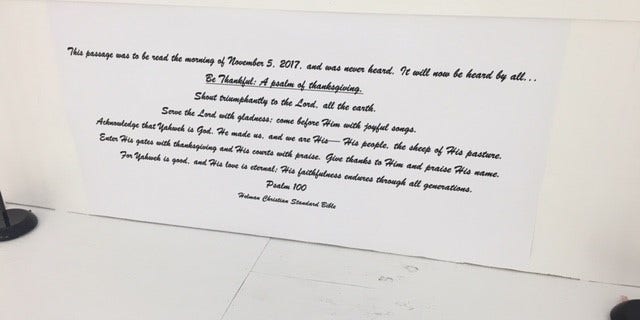 This passage was to be read the morning of November 5, 2017, and was never heard. It will now be heard by all...
Be Thankful: A psalm of thanksgiving.
Shout triumphantly to the Lord, all the earth.
Serve the Lord with gladness; come before Him with joyful songs.
Acknowledge that Yahweh is God. He made us, and we are His— His people, the sheep of His pasture.
Enter His gates with thanksgiving and His courts with praise. Give thanks to Him and praise His name.
For Yahweh is good, and His love is eternal; His faithfulness endures through all generations.
Psalm 100
Holman Christian Standard Bible